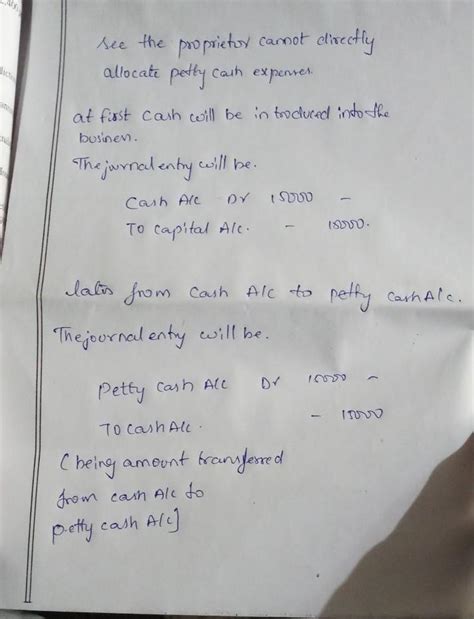 see the proprietor cannot directly
allocate petty cash expenses
at first cash will be introduced into the
business.
The journal entry will be.
Cash A/c Dr 15000 -
To capital A/c. - 15000.
later from cash A/c to petty cash A/c.
The journal entry will be.
Petty cash A/c Dr 15000 -
- 15000
To cash A/c.
(being amount transferred
from cash A/c to
petty cash A/c]